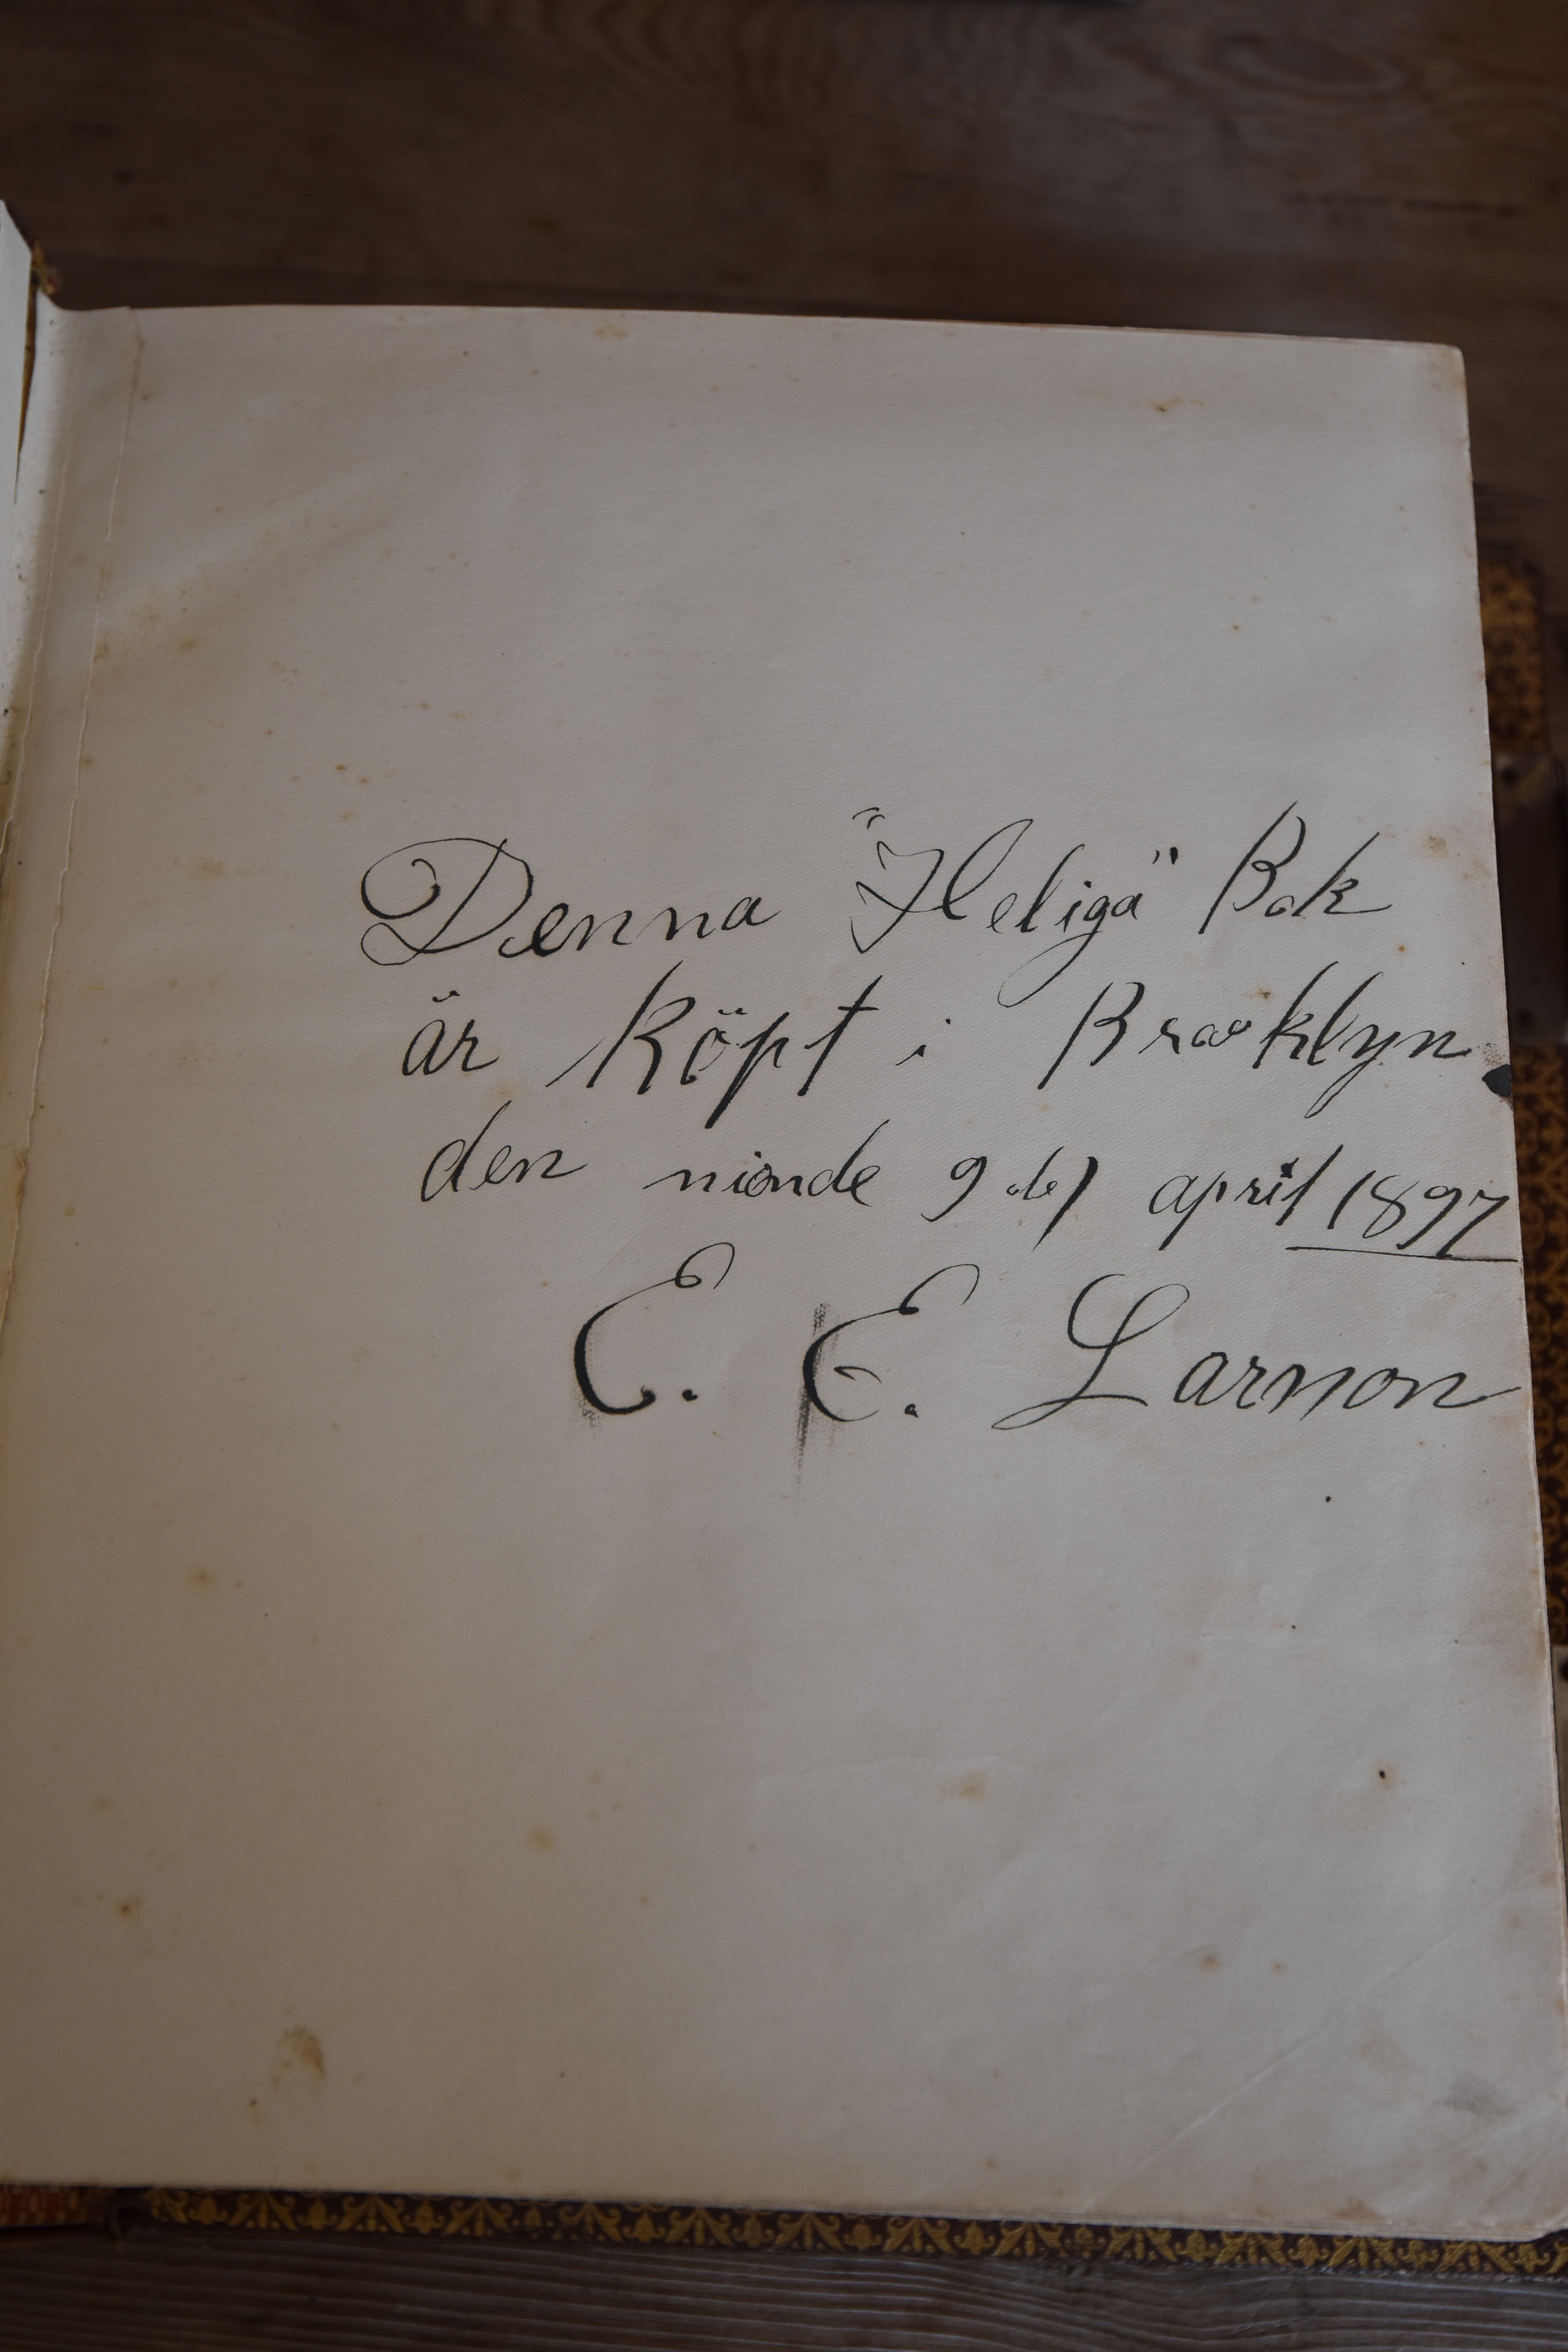 Denna "Heliga" Bok
är Köpt i Brooklyn
den nionde 9de) april 1897
E. E. Larson